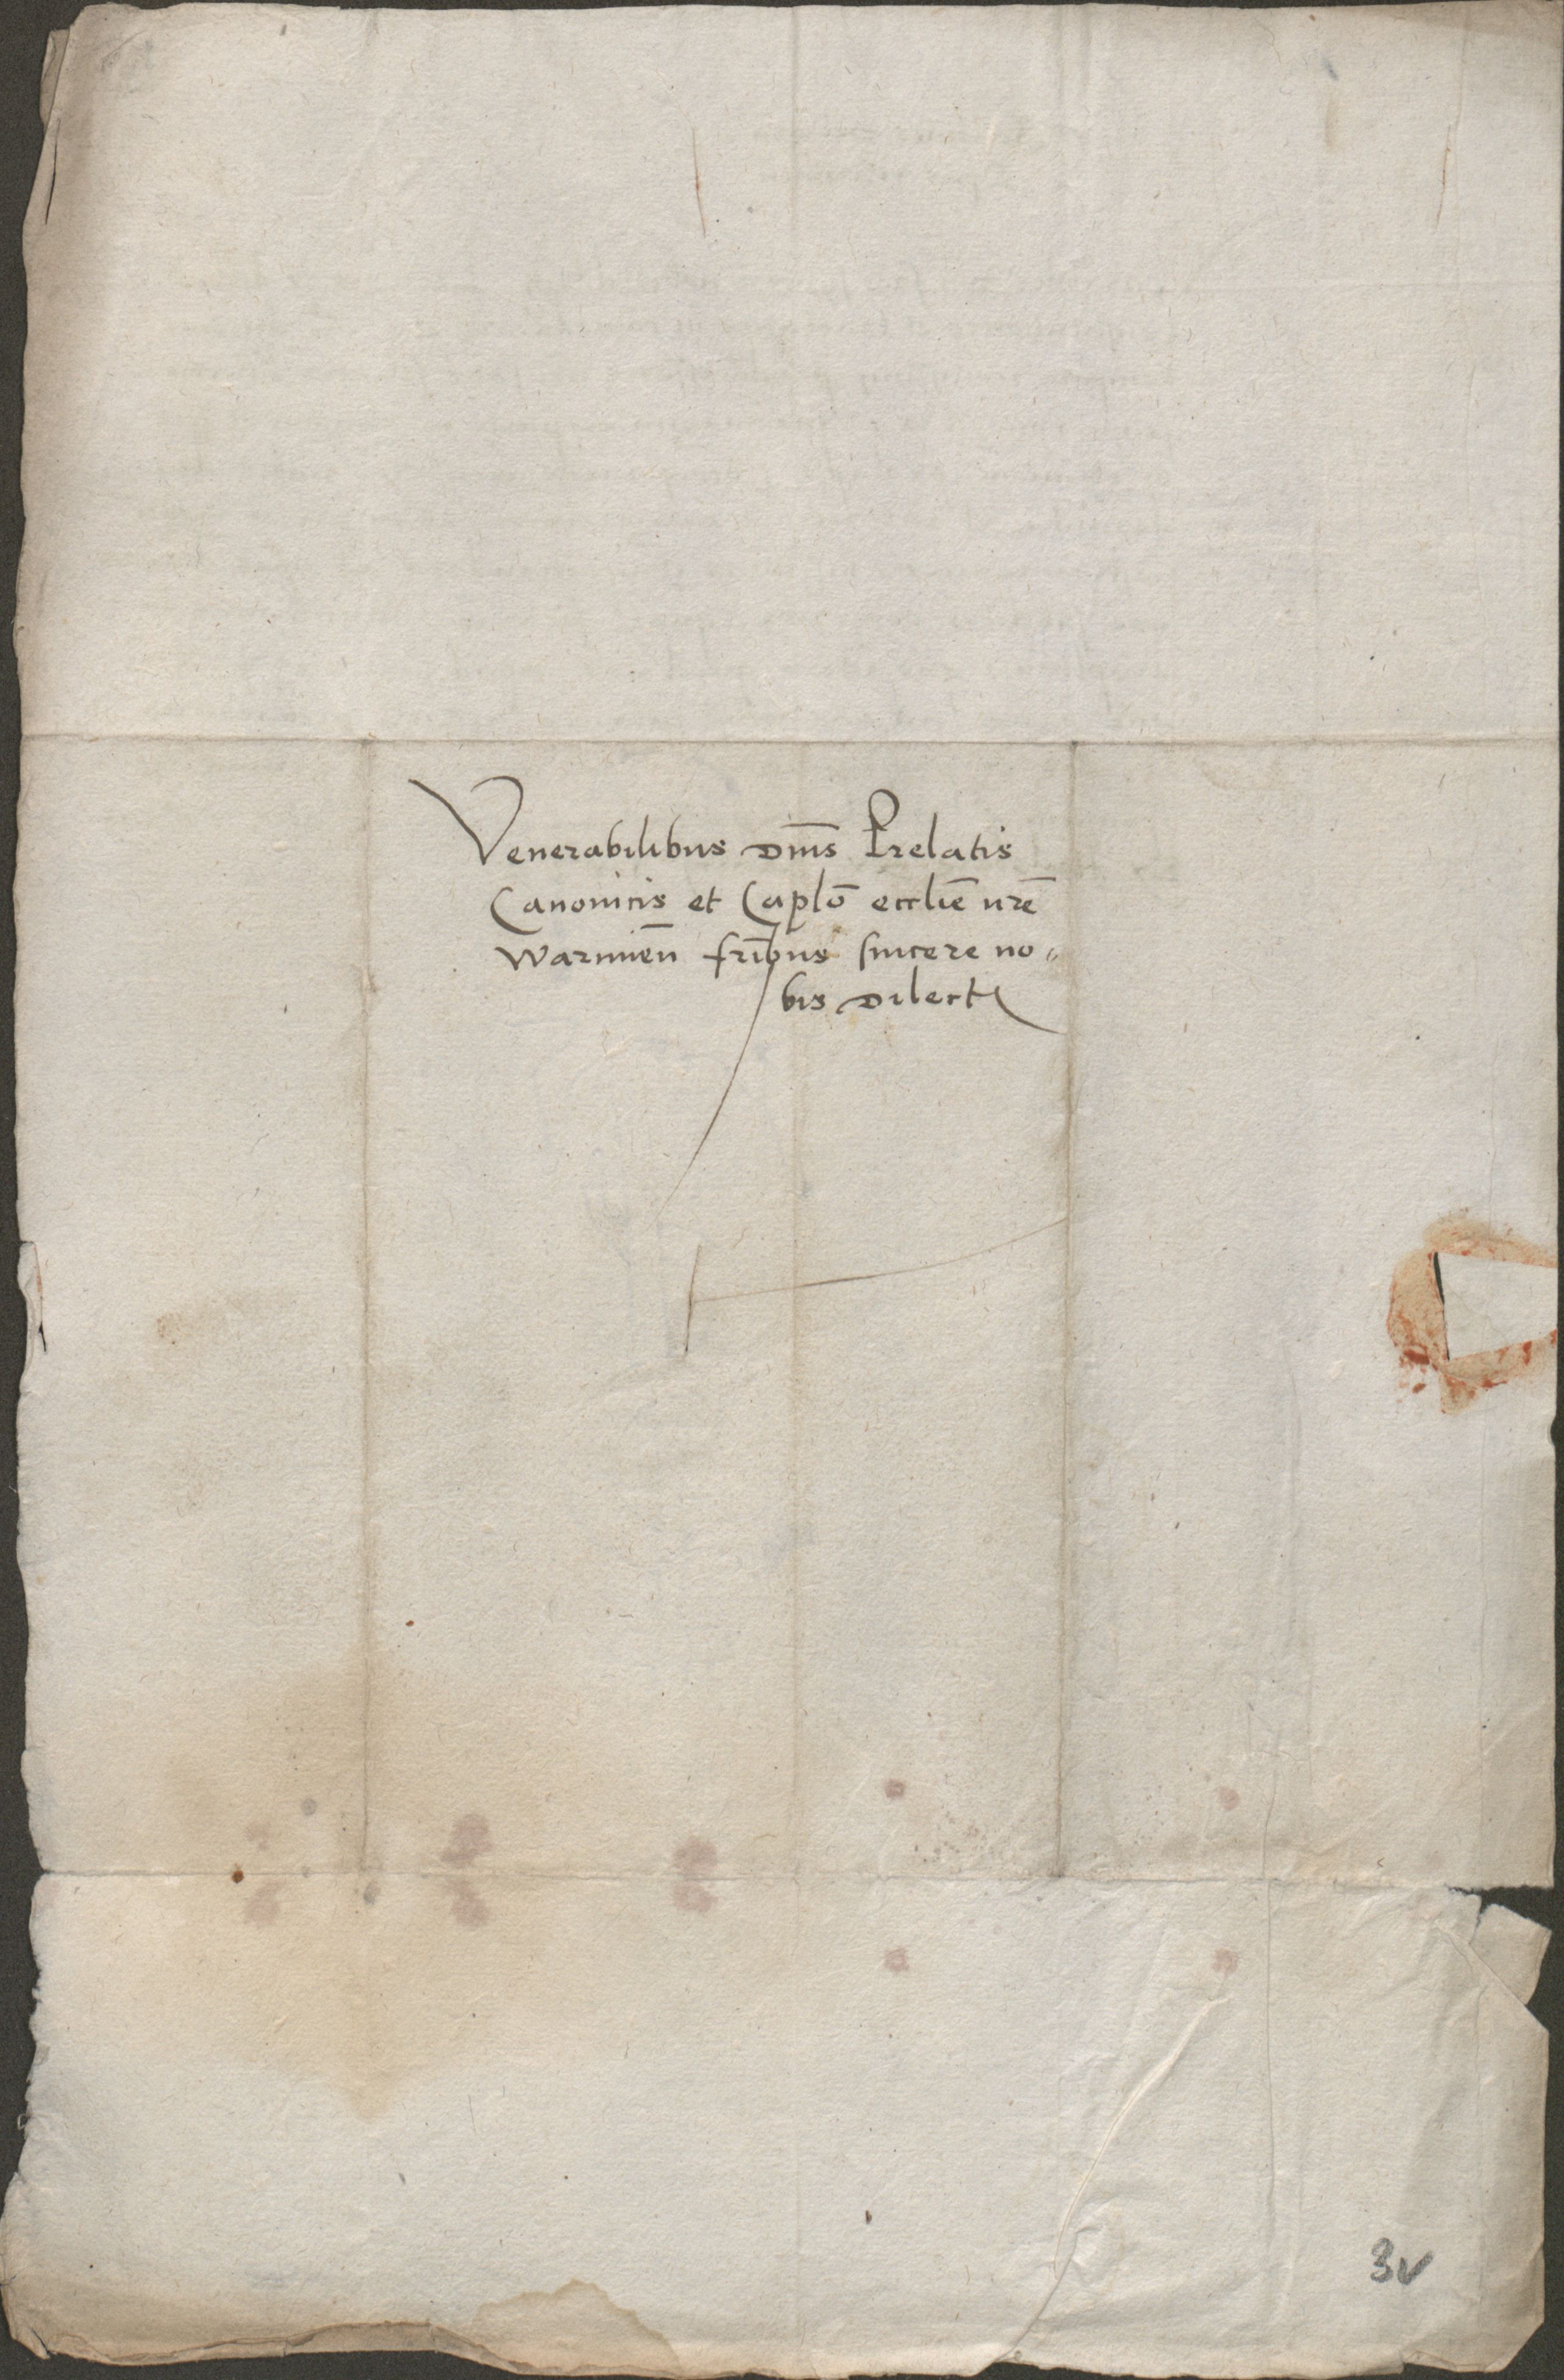 Venerabilibus dn̄is Prelatis
Canonicis et Caplō᷎ eccliē nrē
Warmien̄ frībus sincere no⸗
bis dilectꝭ
3v